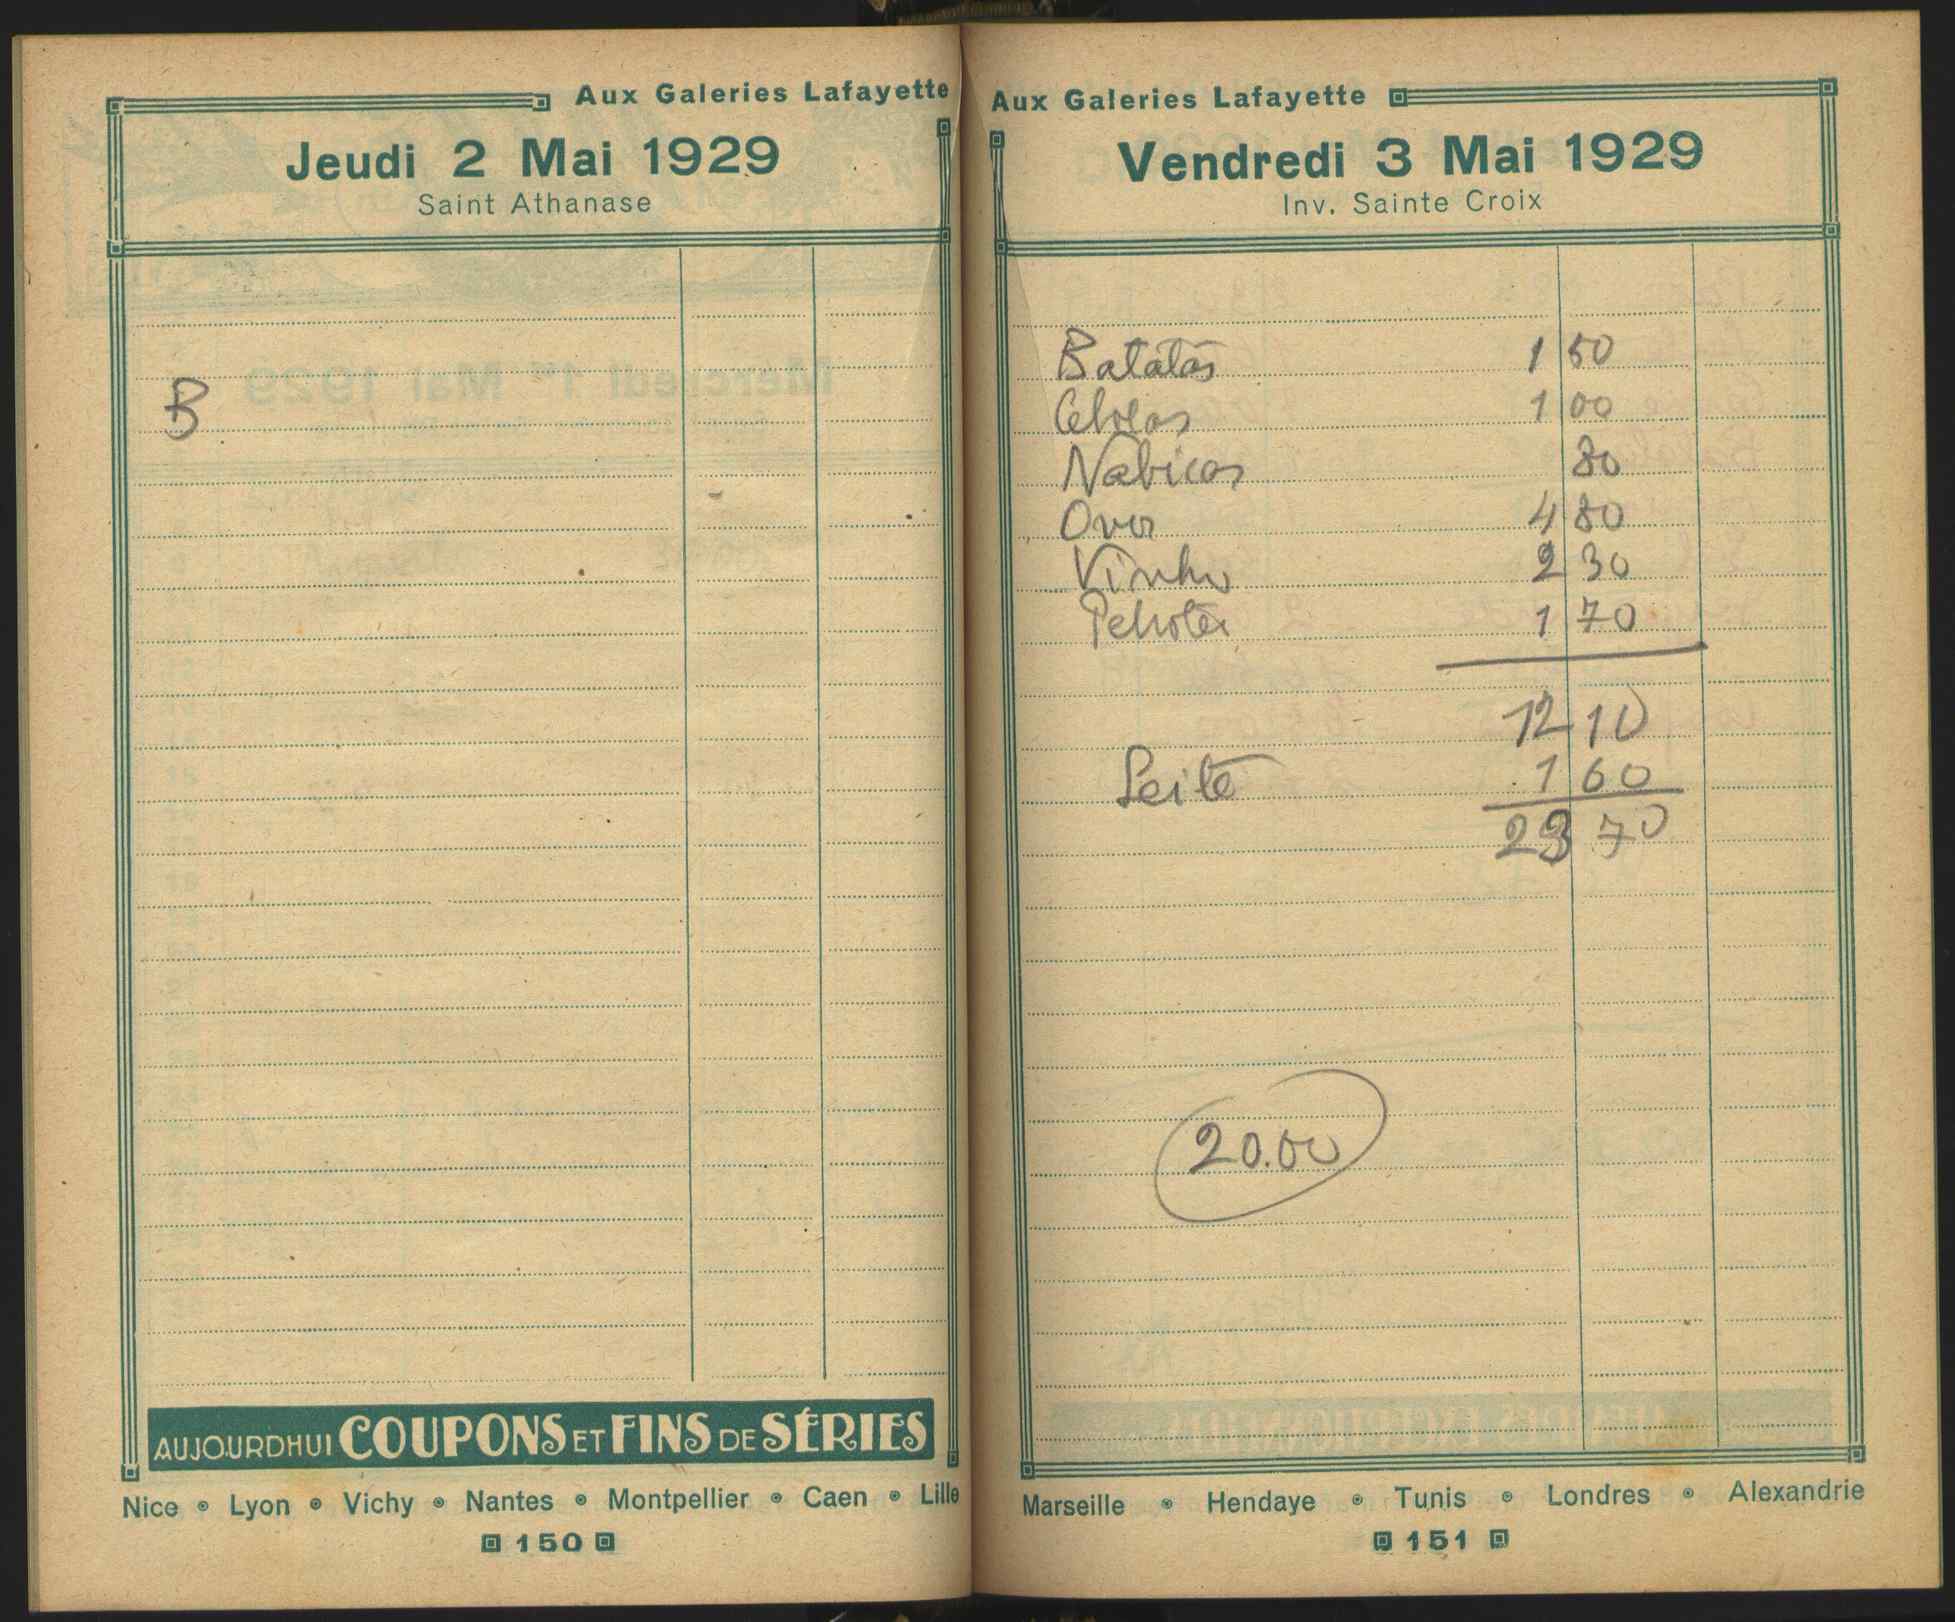 Aux Galeries Lafayette
Jeudi 2 Mai 1929
Saint Athanase
B
AUJOURDHUI COUPONS ET FINS DE SÉRIES
Nice • Lyon • Vichy • Nantes • Montpellier • Caen • Lille
150
Aux Galeries Lafayette
Vendredi 3 Mai 1929
Inv. Sainte Croix
Batatas 1 50
Cebolas 1 00
Nabiças 80
Ovos 4 80
Vinho 2 30
1 70
12 10
Leite 1 60
23 70
20.00
Marseille • Hendaye • Tunis • Londres • Alexandrie
151